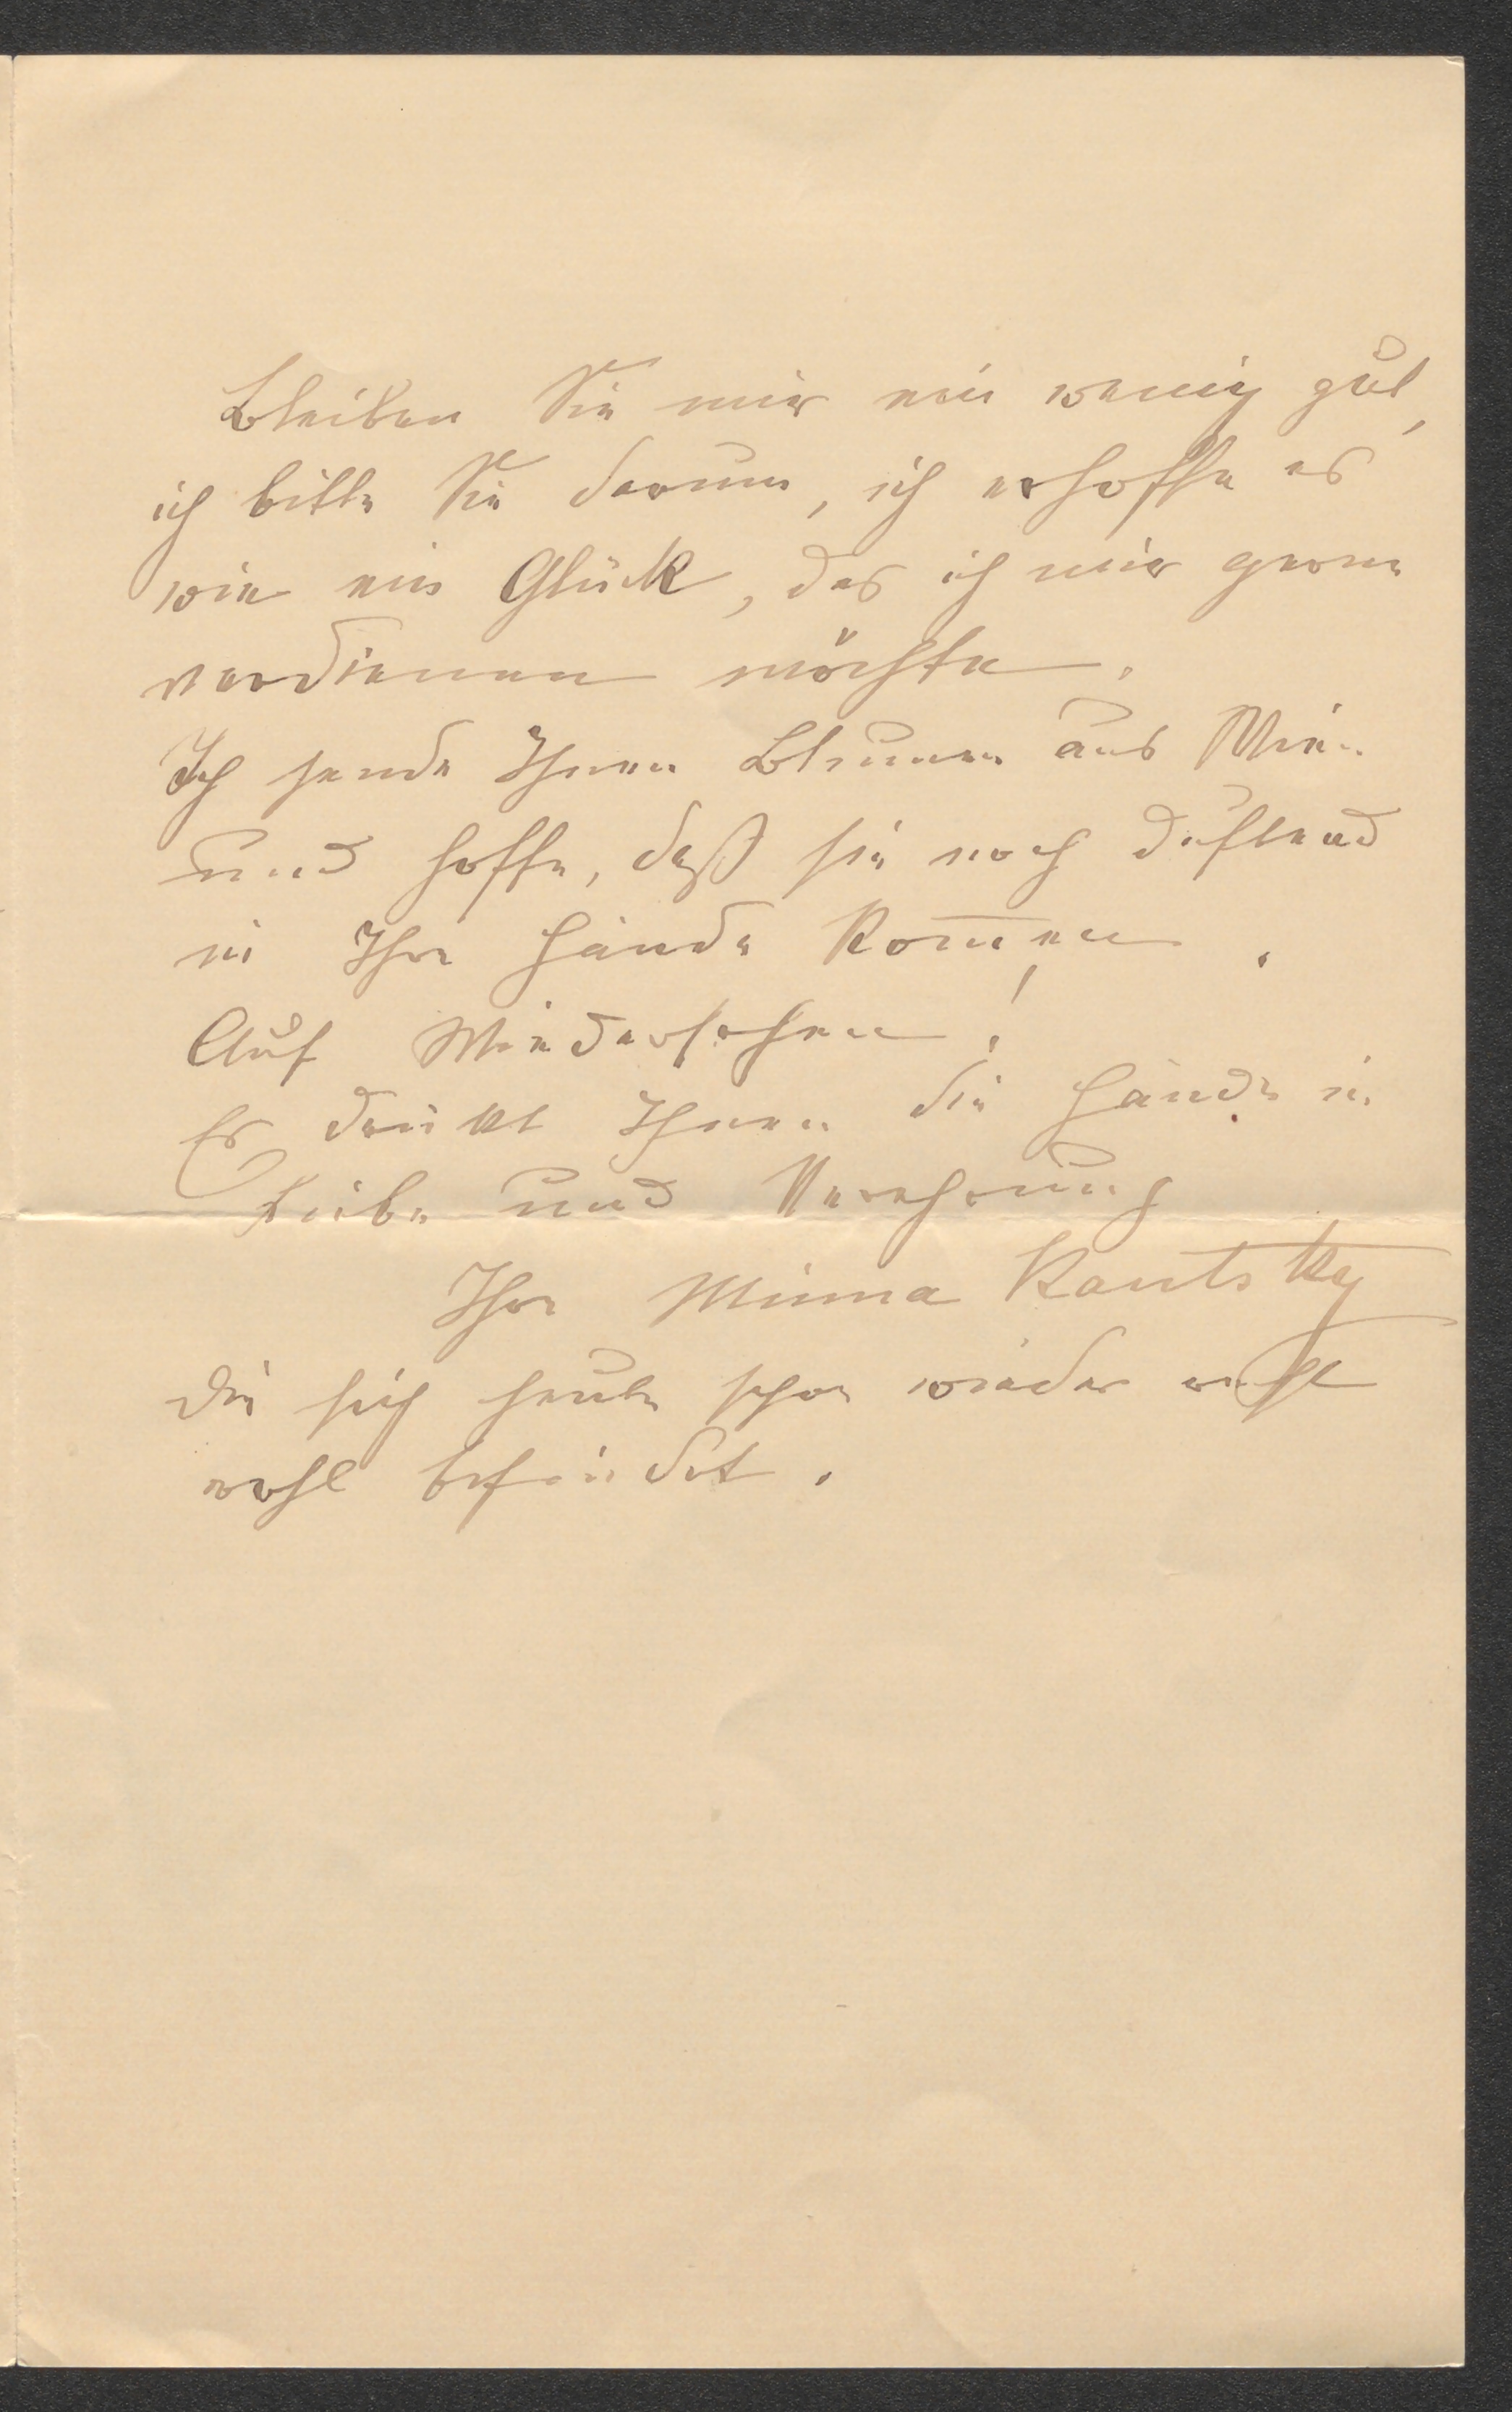 Bleiben Sie mir ein wenig gut,
ich bitte Sie darum, ich erhoffe es
wie ein Glück, das ich mir gerne
verdienen möchte.
Ich sende Ihnen Blumen aus Wien
und hoffe, daß sie noch duftend
in Ihre Hände kom̅en.
Auf Wiedersehen!
Es drückt Ihnen die Hände in
Liebe und Verehrung
Ihre Minna Kautsky
die sich heute schon wieder recht
wohl befindet.